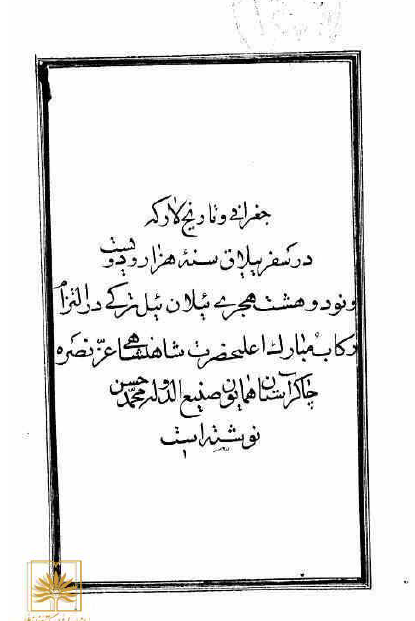 جغرافی و تاریخ لار که
در سفر ییلاق سنهٔ هزار و دویست
و نود و هشت هجری ئیلان ئیل ترکی در التزام
رکاب مبارک اعلیحضرت شاهنشاهی عز نصره
چاکر آستان همایون صنیع الدوله محمد حسن
نوشته است